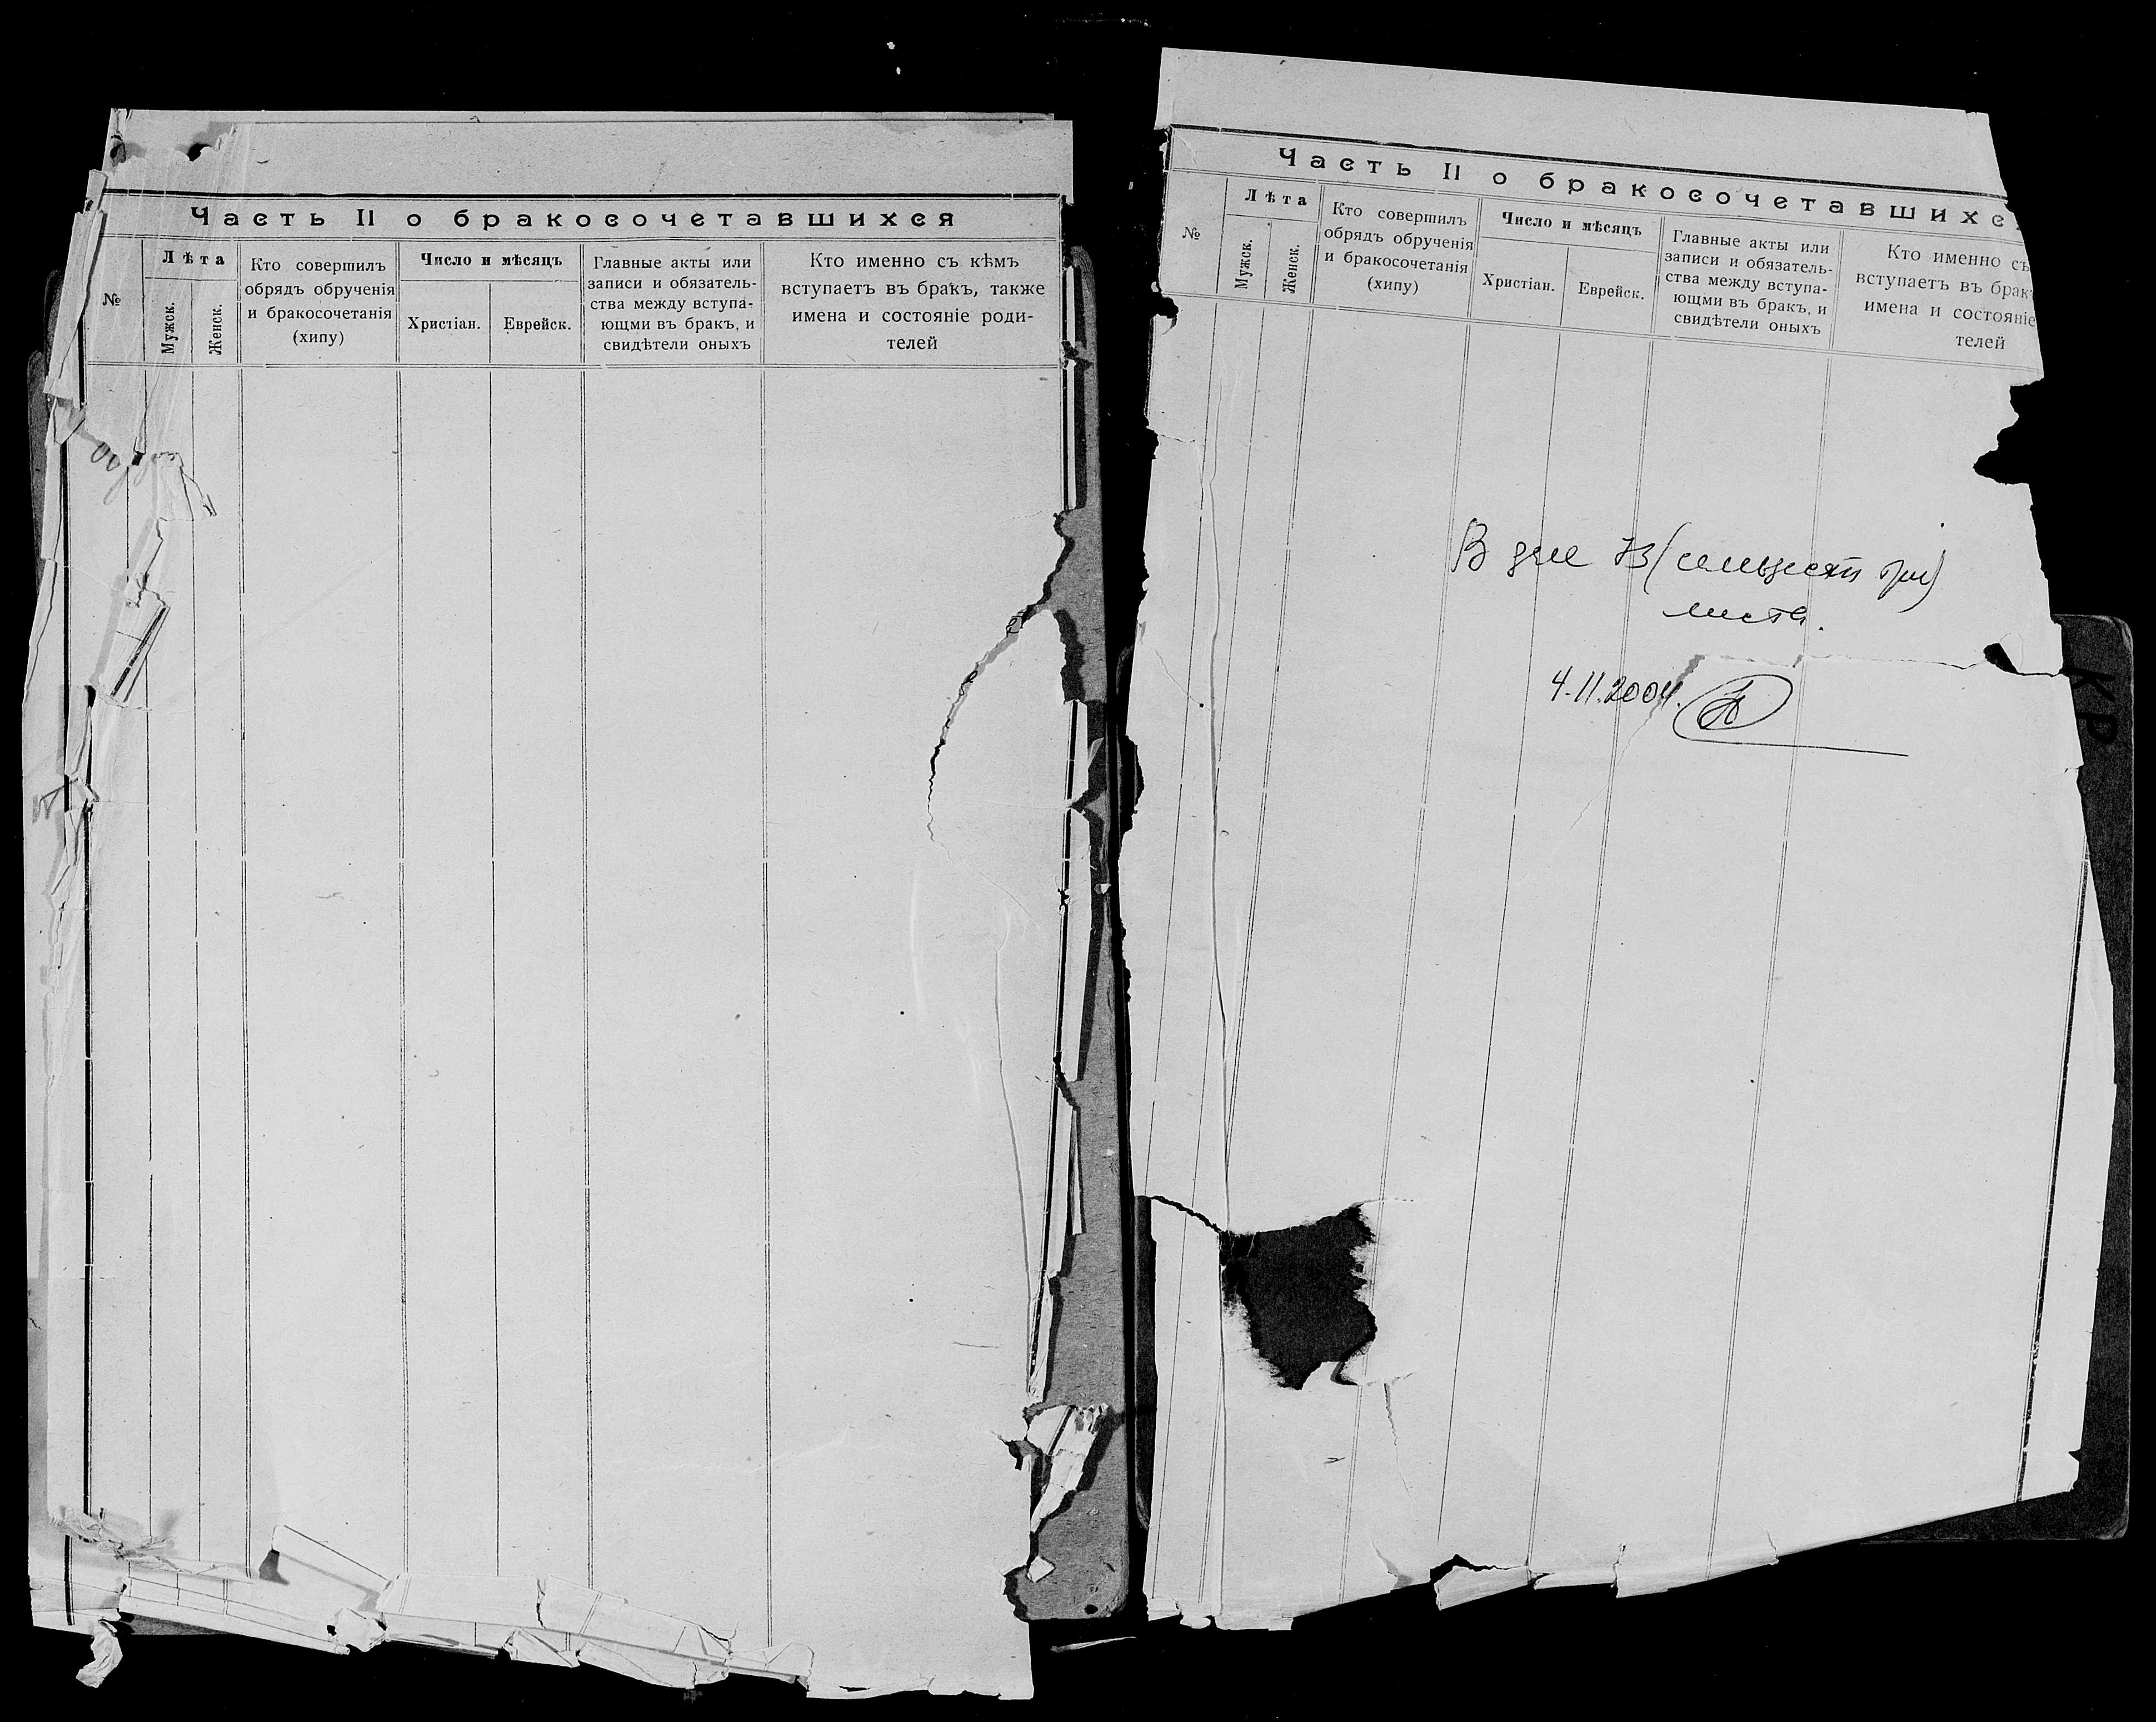 Часть II о бракосочетавшихся
№
Лѣта
Мужск.
Женск.
Кто совершилъ
обрядъ обрученія
и бракосочетанія
(хипу)
Число и мѣсяцъ
Христіан.
Еврейск.
Главные акты или
записи и обязатель-
ства между вступа-
ющми въ бракъ, и
свидѣтели оныхъ
Кто именно съ кѣмъ
вступаетъ въ бракъ, также
имена и состояніе роди-
телей
Часть II о бракосочетавшихс
№
Лѣта
Мужск.
Женск.
Кто совершилъ
обрядъ обрученія
и бракосочетанія
(хипу)
Число и мѣсяцъ
Христіан.
Еврейск.
Главные акты или
записи и обязатель-
ства между вступа-
ющми въ бракъ, и
свидѣтели оныхъ
Кто именно съ
вступаетъ въ брак
имена и состояніе
телей
В деле 73 (семьдесят три)
листа.
4.11.2004.
КР